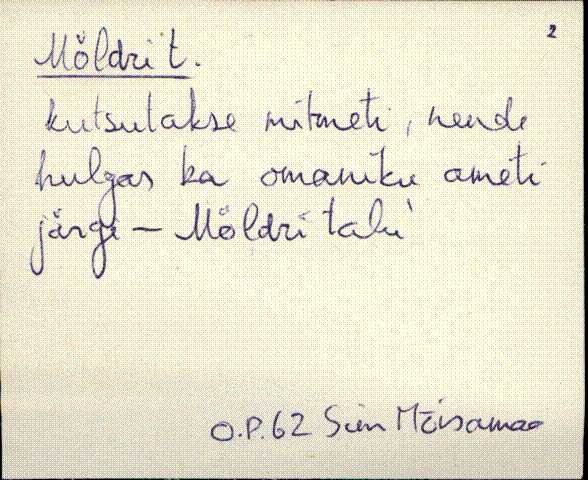 2
Möldri t.
kutsutakse mitmeti, nende
hulgas ka omaniku ameti
järge – Möldri talu
O.P. 62 Mõisamaa